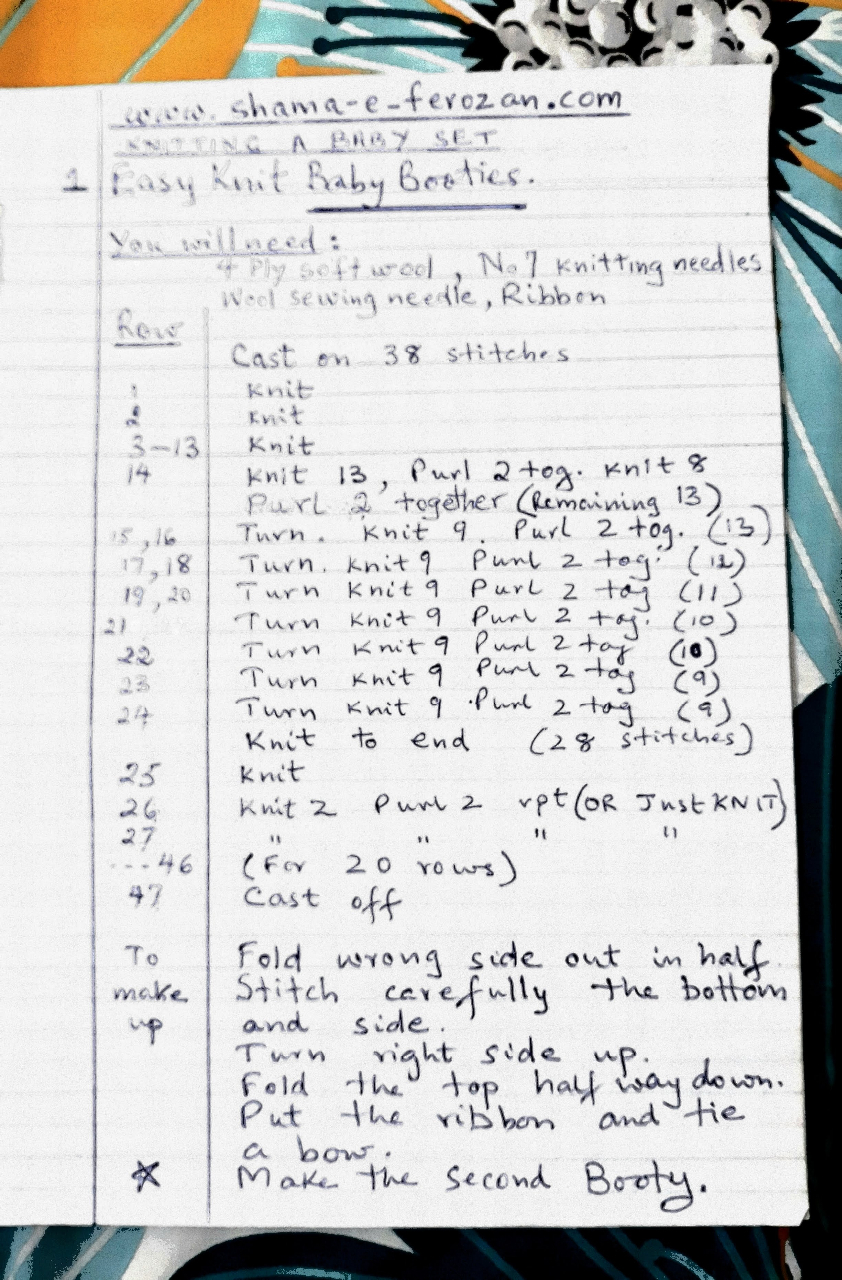 www.shama-e-ferozan.com
KNITTING A BABY SET
1 Easy Knit Baby Booties.
You will need :
4 Ply soft wool , No 7 knitting needles
Wool sewing needle , Ribbon
Row
Cast on 38 stitches
1 Knit
2 Knit
3-13 Knit
14 Knit 13, Purl 2 tog. Knit 8
Purl 2 together (Remaining 13)
15,16 Turn. Knit 9. Purl 2 tog. (13)
17,18 Turn. Knit 9 Purl 2 tog. (12)
19,20 Turn Knit 9 Purl 2 tog (11)
21 Turn Knit 9 Purl 2 tog. (10)
22 Turn Knit 9 Purl 2 tog (10)
23 Turn Knit 9 Purl 2 tog (9)
24 Turn Knit 9 . Purl 2 tog (9)
Knit to end (28 stitches)
25 Knit
26 Knit 2 Purl 2 rpt (OR Just KNIT)
27 " " " "
---46 (For 20 rows)
47 Cast off
To Fold wrong side out in half.
make Stitch carefully the bottom
up and side.
Turn right side up.
Fold the top half way down.
Put the ribbon and tie
a bow.
☆ Make the second Booty.